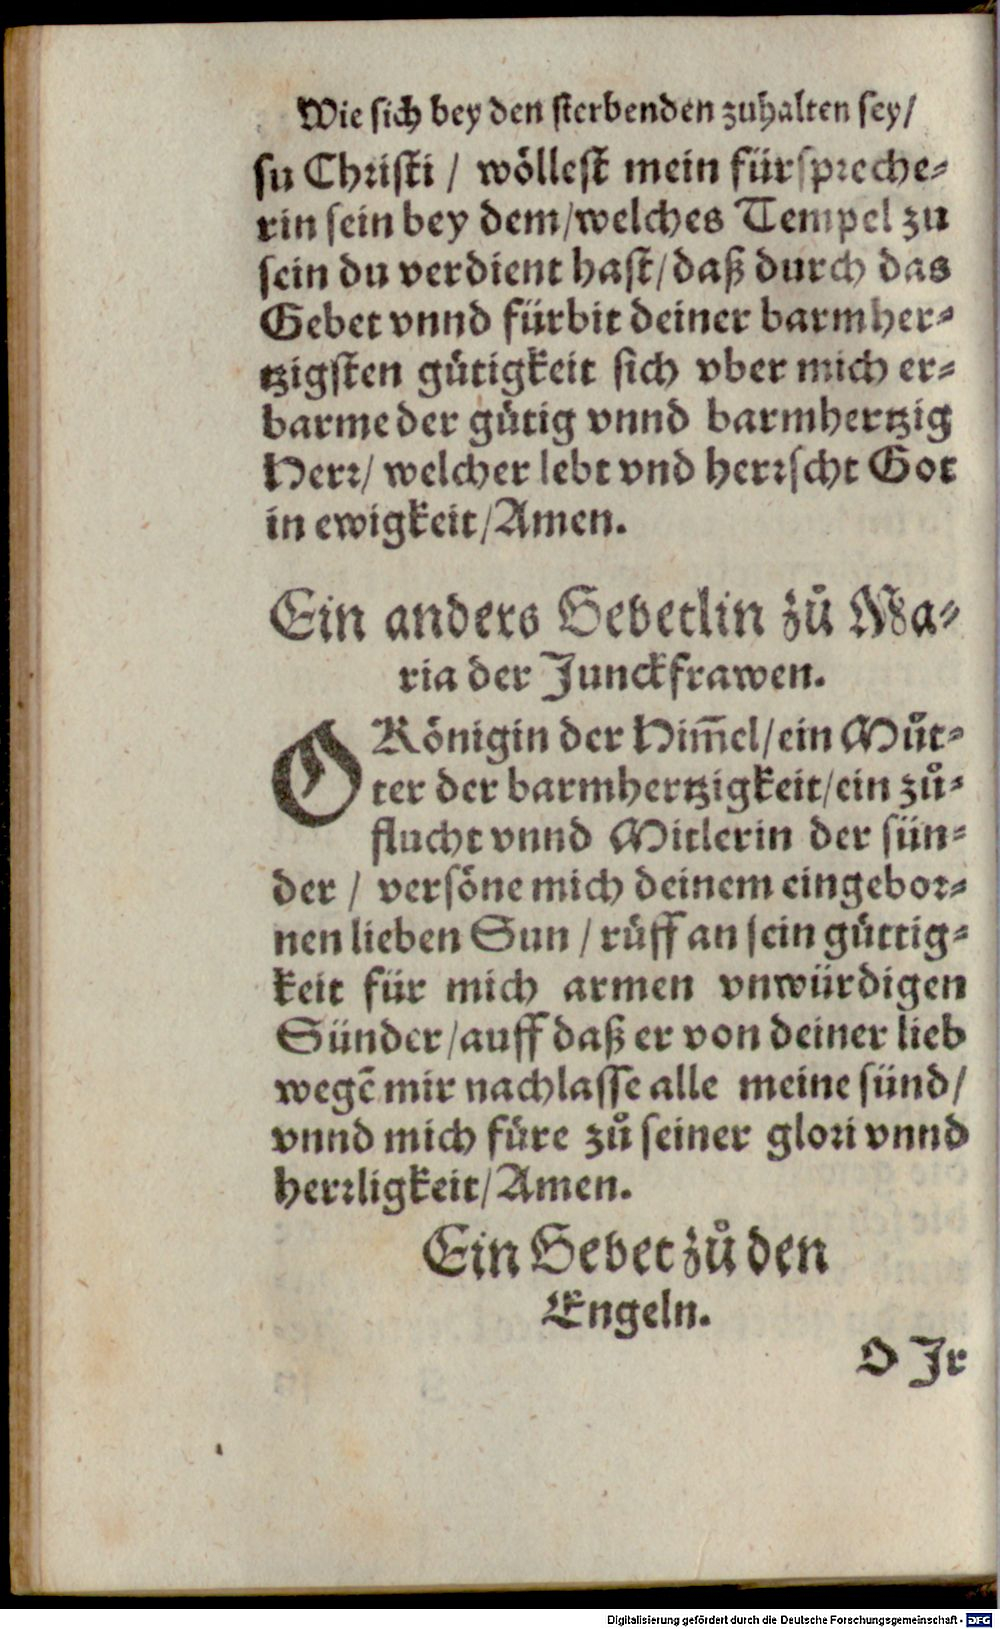 Wie sich bey den sterbenden zuhalten sey/
su Christi / wöllest mein fürspreche⸗
rin sein bey dem/welches Tempel zu
sein du verdient hast/daß durch das
Gebet vnnd fürbit deiner barmher⸗
tzigsten gütigkeit sich vber mich er⸗
barme der gütig vnnd barmhertzig
Herr/ welcher lebt vnd herrscht Got
in ewigkeit/Amen.
Ein anders Gebetlin zů Ma⸗
ria der Junckfrawen.
O Königin der Him̄el/ein Můt⸗
ter der barmhertzigkeit/ein zů⸗
flucht vnnd Mitlerin der sün⸗
der / versöne mich deinem eingebor⸗
nen lieben Sun / rüff an sein güttig⸗
keit für mich armen vnwürdigen
Sünder/auff daß er von deiner lieb
wegē mir nachlasse alle meine sünd/
vnnd mich füre zů seiner glori vnnd
herrligkeit/Amen.
Ein Gebet zů den
Engeln.
O Jr
Digitalisierung gefördert durch die Deutsche Forschungsgemeinschaft - DFG